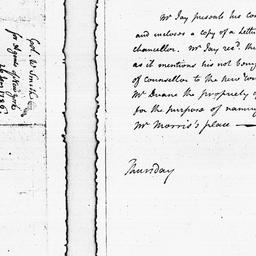 Mr Jay presents his com
and incloses a copy of a Lette
chancellor. Mr Jay recd. the
as it mentions his not
of counsellor to the new
Mr Duane the propriety o
for the purpose of naming
Mr Morris's place —
Thursday
Col. W. Smith
for